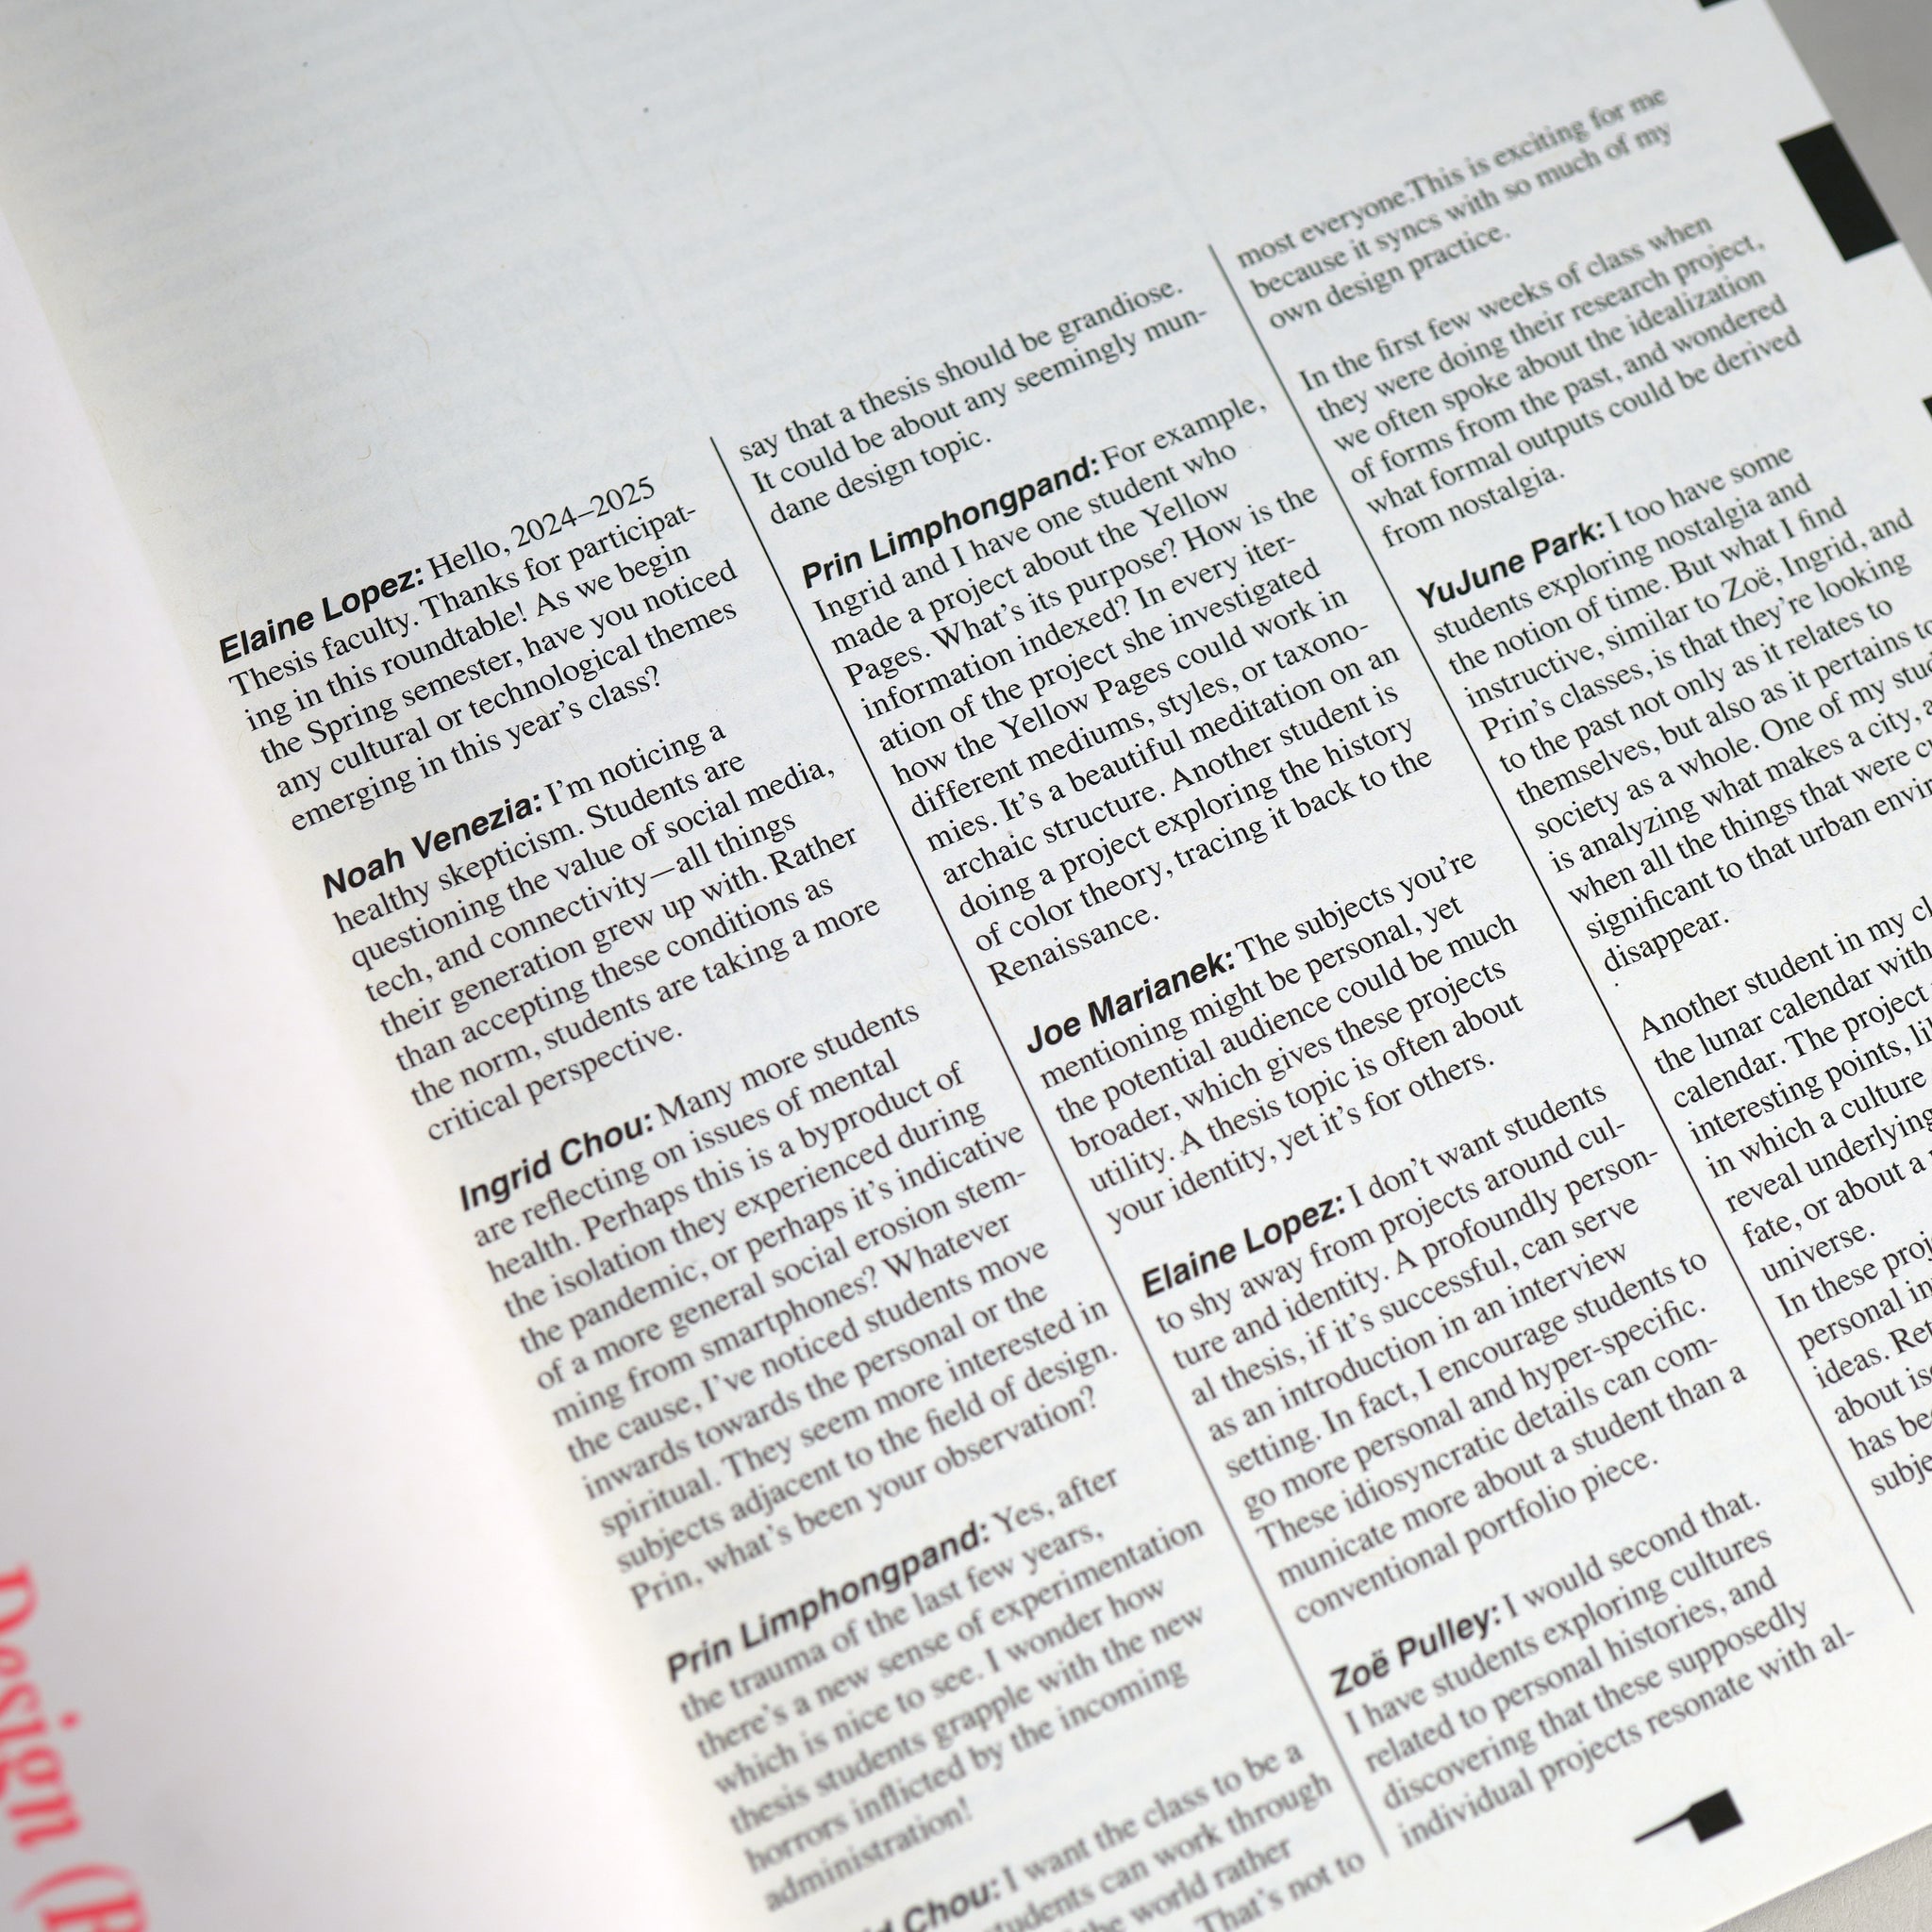 Elaine Lopez: Hello, 2024–2025
Thesis faculty. Thanks for participat-
ing in this roundtable! As we begin
the Spring semester, have you noticed
any cultural or technological themes
emerging in this year’s class?
Noah Venezia: I’m noticing a
healthy skepticism. Students are
questioning the value of social media,
tech, and connectivity—all things
their generation grew up with. Rather
than accepting these conditions as
the norm, students are taking a more
critical perspective.
Ingrid Chou: Many more students
are reflecting on issues of mental
health. Perhaps this is a byproduct of
the isolation they experienced during
the pandemic, or perhaps it’s indicative
of a more general social erosion stem-
ming from smartphones? Whatever
the cause, I’ve noticed students move
inwards towards the personal or the
spiritual. They seem more interested in
subjects adjacent to the field of design.
Prin, what’s been your observation?
Prin Limphongpand: Yes, after
the trauma of the last few years,
there’s a new sense of experimentation
which is nice to see. I wonder how
thesis students grapple with the new
horrors inflicted by the incoming
administration!
Chou: I want the class to be a
students can work through
the world rather
That’s not to
say that a thesis should be grandiose.
It could be about any seemingly mun-
dane design topic.
Prin Limphongpand: For example,
Ingrid and I have one student who
made a project about the Yellow
Pages. What’s its purpose? How is the
information indexed? In every iter-
ation of the project she investigated
how the Yellow Pages could work in
different mediums, styles, or taxono-
mies. It’s a beautiful meditation on an
archaic structure. Another student is
doing a project exploring the history
of color theory, tracing it back to the
Renaissance.
Joe Marianek: The subjects you’re
mentioning might be personal, yet
the potential audience could be much
broader, which gives these projects
utility. A thesis topic is often about
your identity, yet it’s for others.
Elaine Lopez: I don’t want students
to shy away from projects around cul-
ture and identity. A profoundly person-
al thesis, if it’s successful, can serve
as an introduction in an interview
setting. In fact, I encourage students to
go more personal and hyper-specific.
These idiosyncratic details can com-
municate more about a student than a
conventional portfolio piece.
Zoë Pulley: I would second that.
I have students exploring cultures
related to personal histories, and
discovering that these supposedly
individual projects resonate with al-
most everyone.This is exciting for me
because it syncs with so much of my
own design practice.
In the first few weeks of class when
they were doing their research project,
we often spoke about the idealization
of forms from the past, and wondered
what formal outputs could be derived
from nostalgia.
YuJune Park: I too have some
students exploring nostalgia and
the notion of time. But what I find
instructive, similar to Zoë, Ingrid, and
Prin’s classes, is that they’re looking
to the past not only as it relates to
themselves, but also as it pertains to
society as a whole. One of my
is analyzing what makes a city,
when all the things that were
significant to that urban
disappear.
Another student in my
the lunar calendar with
calendar. The project
interesting points,
in which a culture
reveal underlying
fate, or about a
universe.
In these
personal
ideas.
about
has
Design